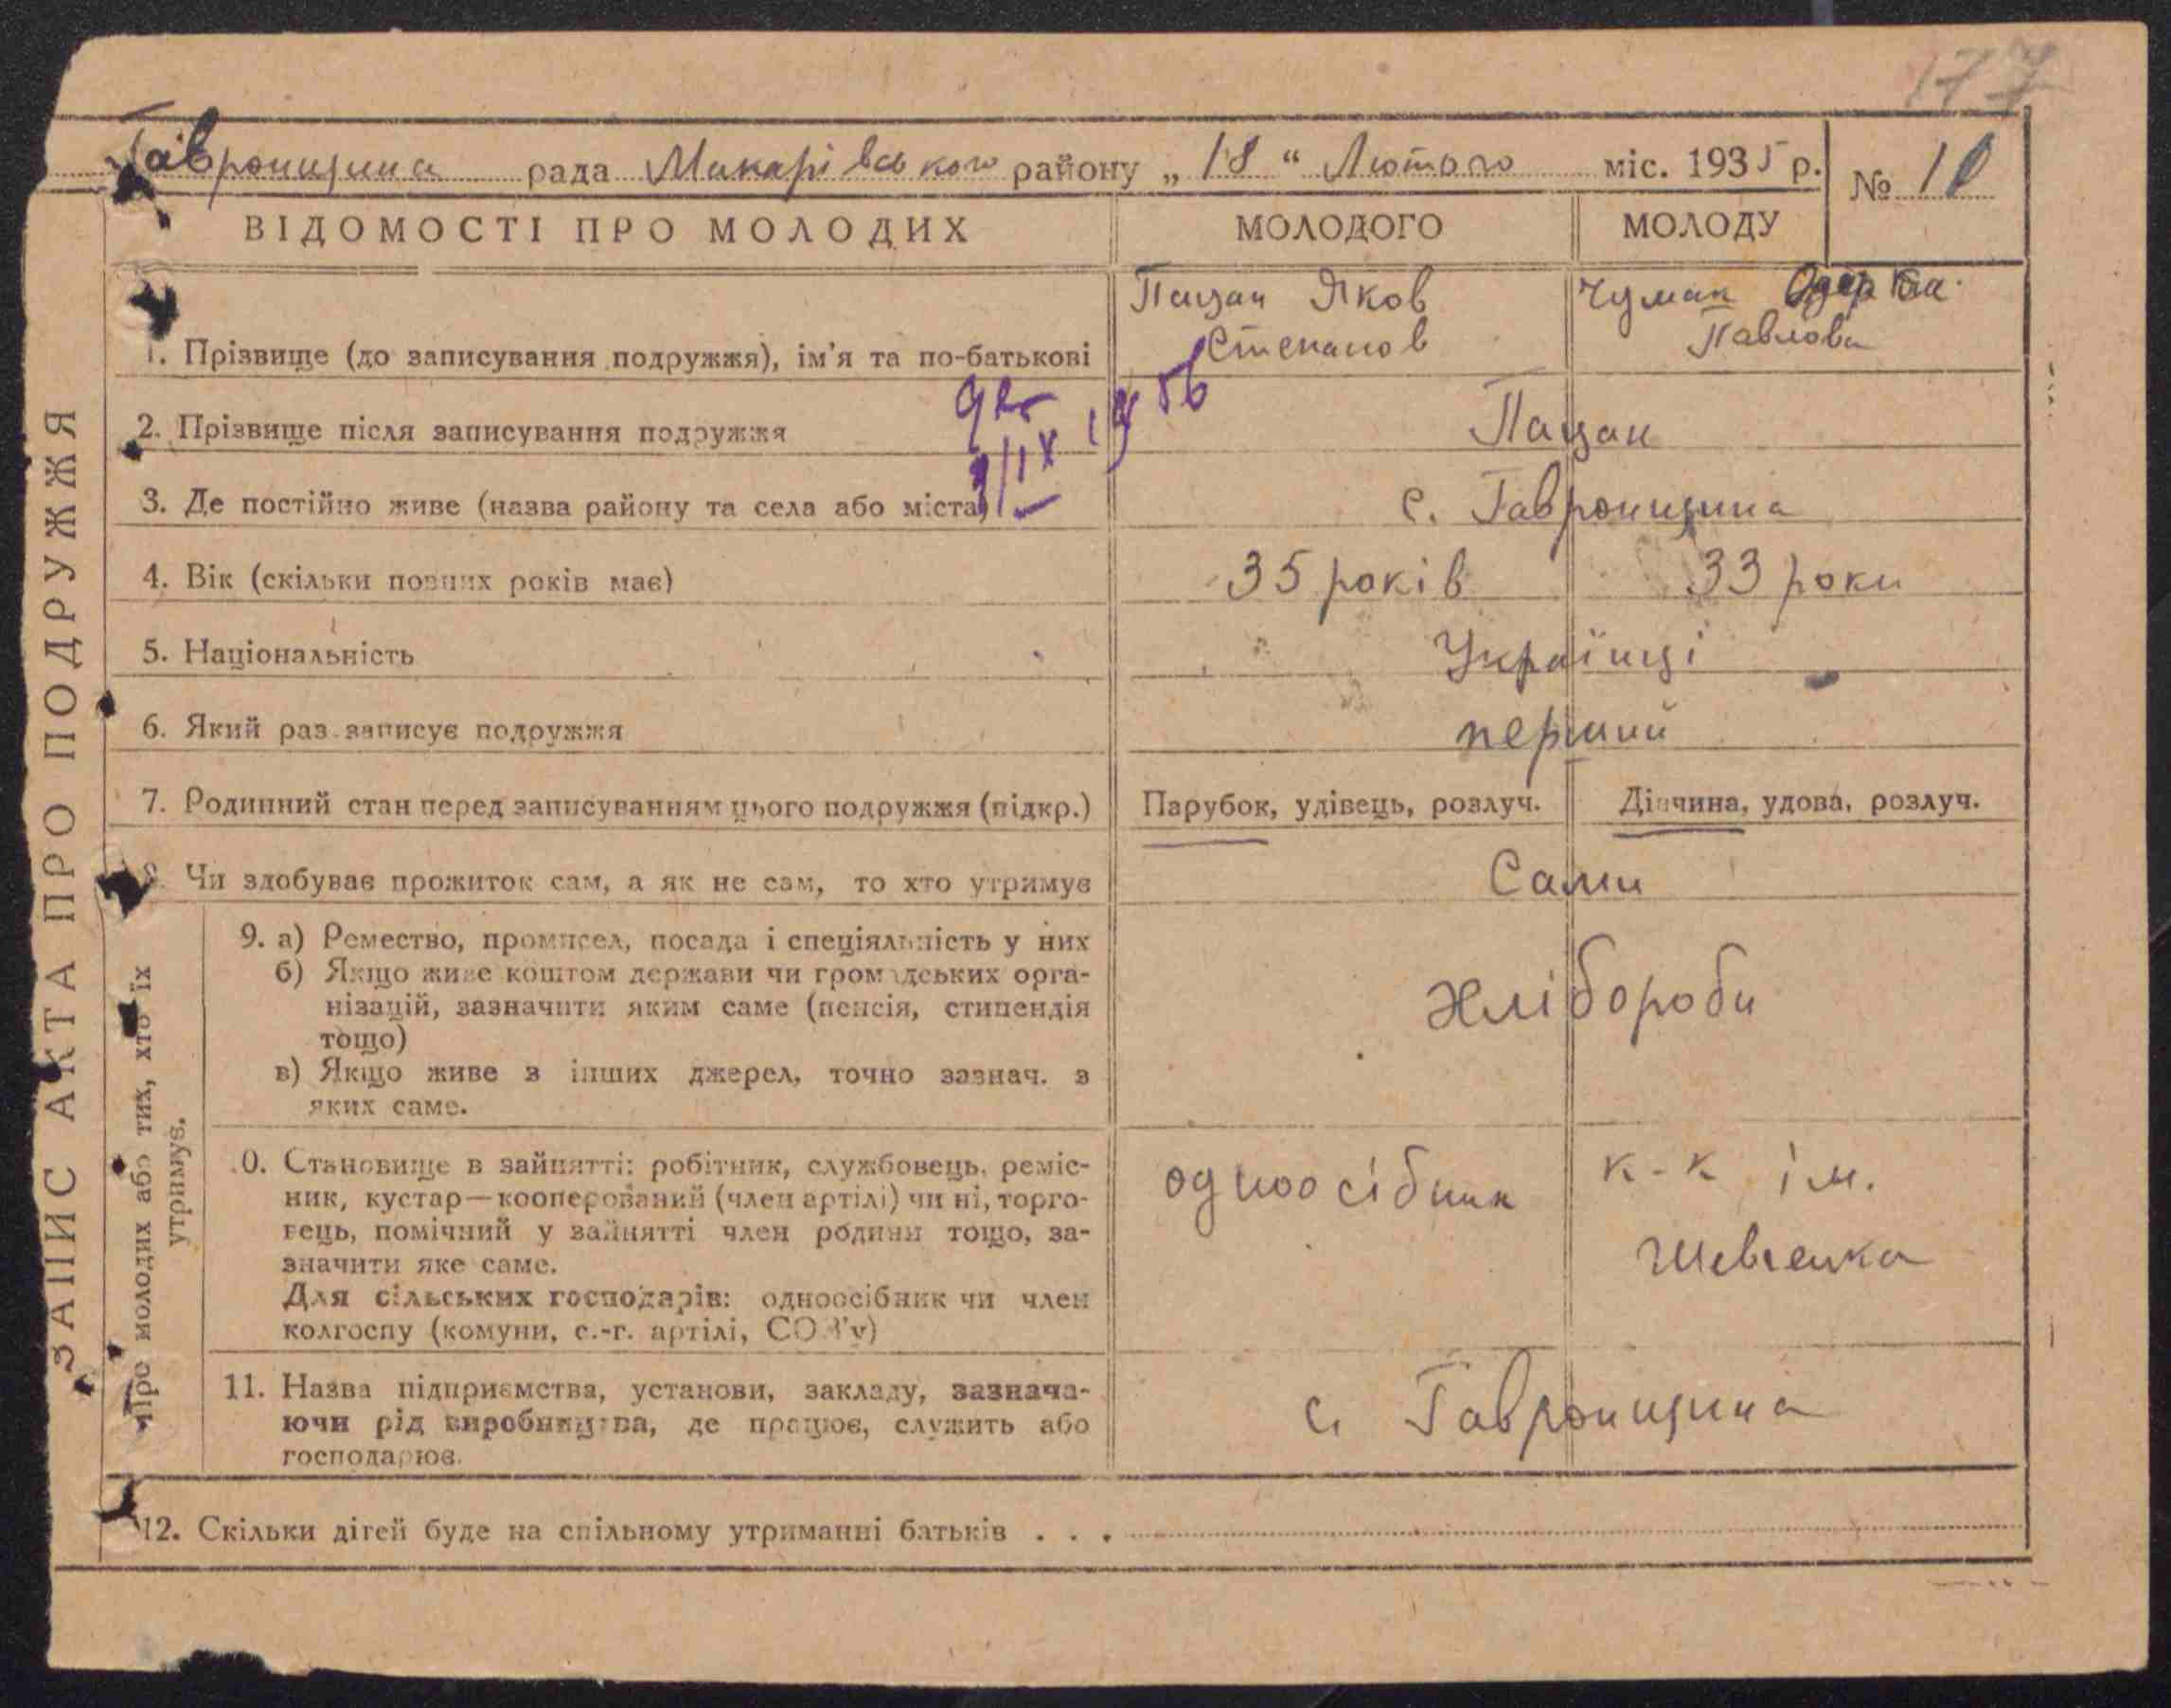 177
Гавронщина рада Макарівського району „18“ Лютого міс. 1935 р.
№ 10
ВІДОМОСТІ ПРО МОЛОДИХ МОЛОДОГО МОЛОДУ
1. Прізвище (до записування подружжя), ім'я та по-батькові
Пацан Яков
Степанов
Чумак Одарка
Павлова
2. Прізвище після записування подружжя
Пацан
3. Де постійно живе (назва району та села або міста)
с. Гавронщина
4. Вік (скільки повних років має) 35 років 33 роки
5. Національність Українці
6. Який раз записує подружжя перший
7. Родинний стан перед записуванням цього подружжя (підкр.) Парубок, удівець, розлуч. Дівчина, удова, розлуч.
Чи здобуває прожиток сам, а як не сам, то хто утримує Сами
9. а) Ремество, промисел, посада і спеціяльність у них
б) Якщо живе коштом держави чи громадських орга-
нізацій, зазначити яким саме (пенсія, стипендія
тощо)
в) Якщо живе з інших джерел, точно зазнач. з
яких саме.
Хлібороби
0. Становище в зайнятті: робітник, службовець, реміс-
ник, кустар—кооперований (член артілі) чи ні, торго-
вець, помічний у зайнятті член родини тощо, за-
значити яке саме.
Для сільських господарів: одноосібник чи член
колгоспу (комуни, с.-г. артілі, СОЗ'у)
одноосібник
к-к ім.
Шевченка
11. Назва підприємства, установи, закладу, зазнача-
ючи рід виробництва, де працює, служить або
господарює.
с. Гавронщина
12. Скільки дітей буде на спільному утриманні батьків . . .
ЗАПИС АКТА ПРО ПОДРУЖЖЯ
Про молодих або тих, хто їх
утримує.